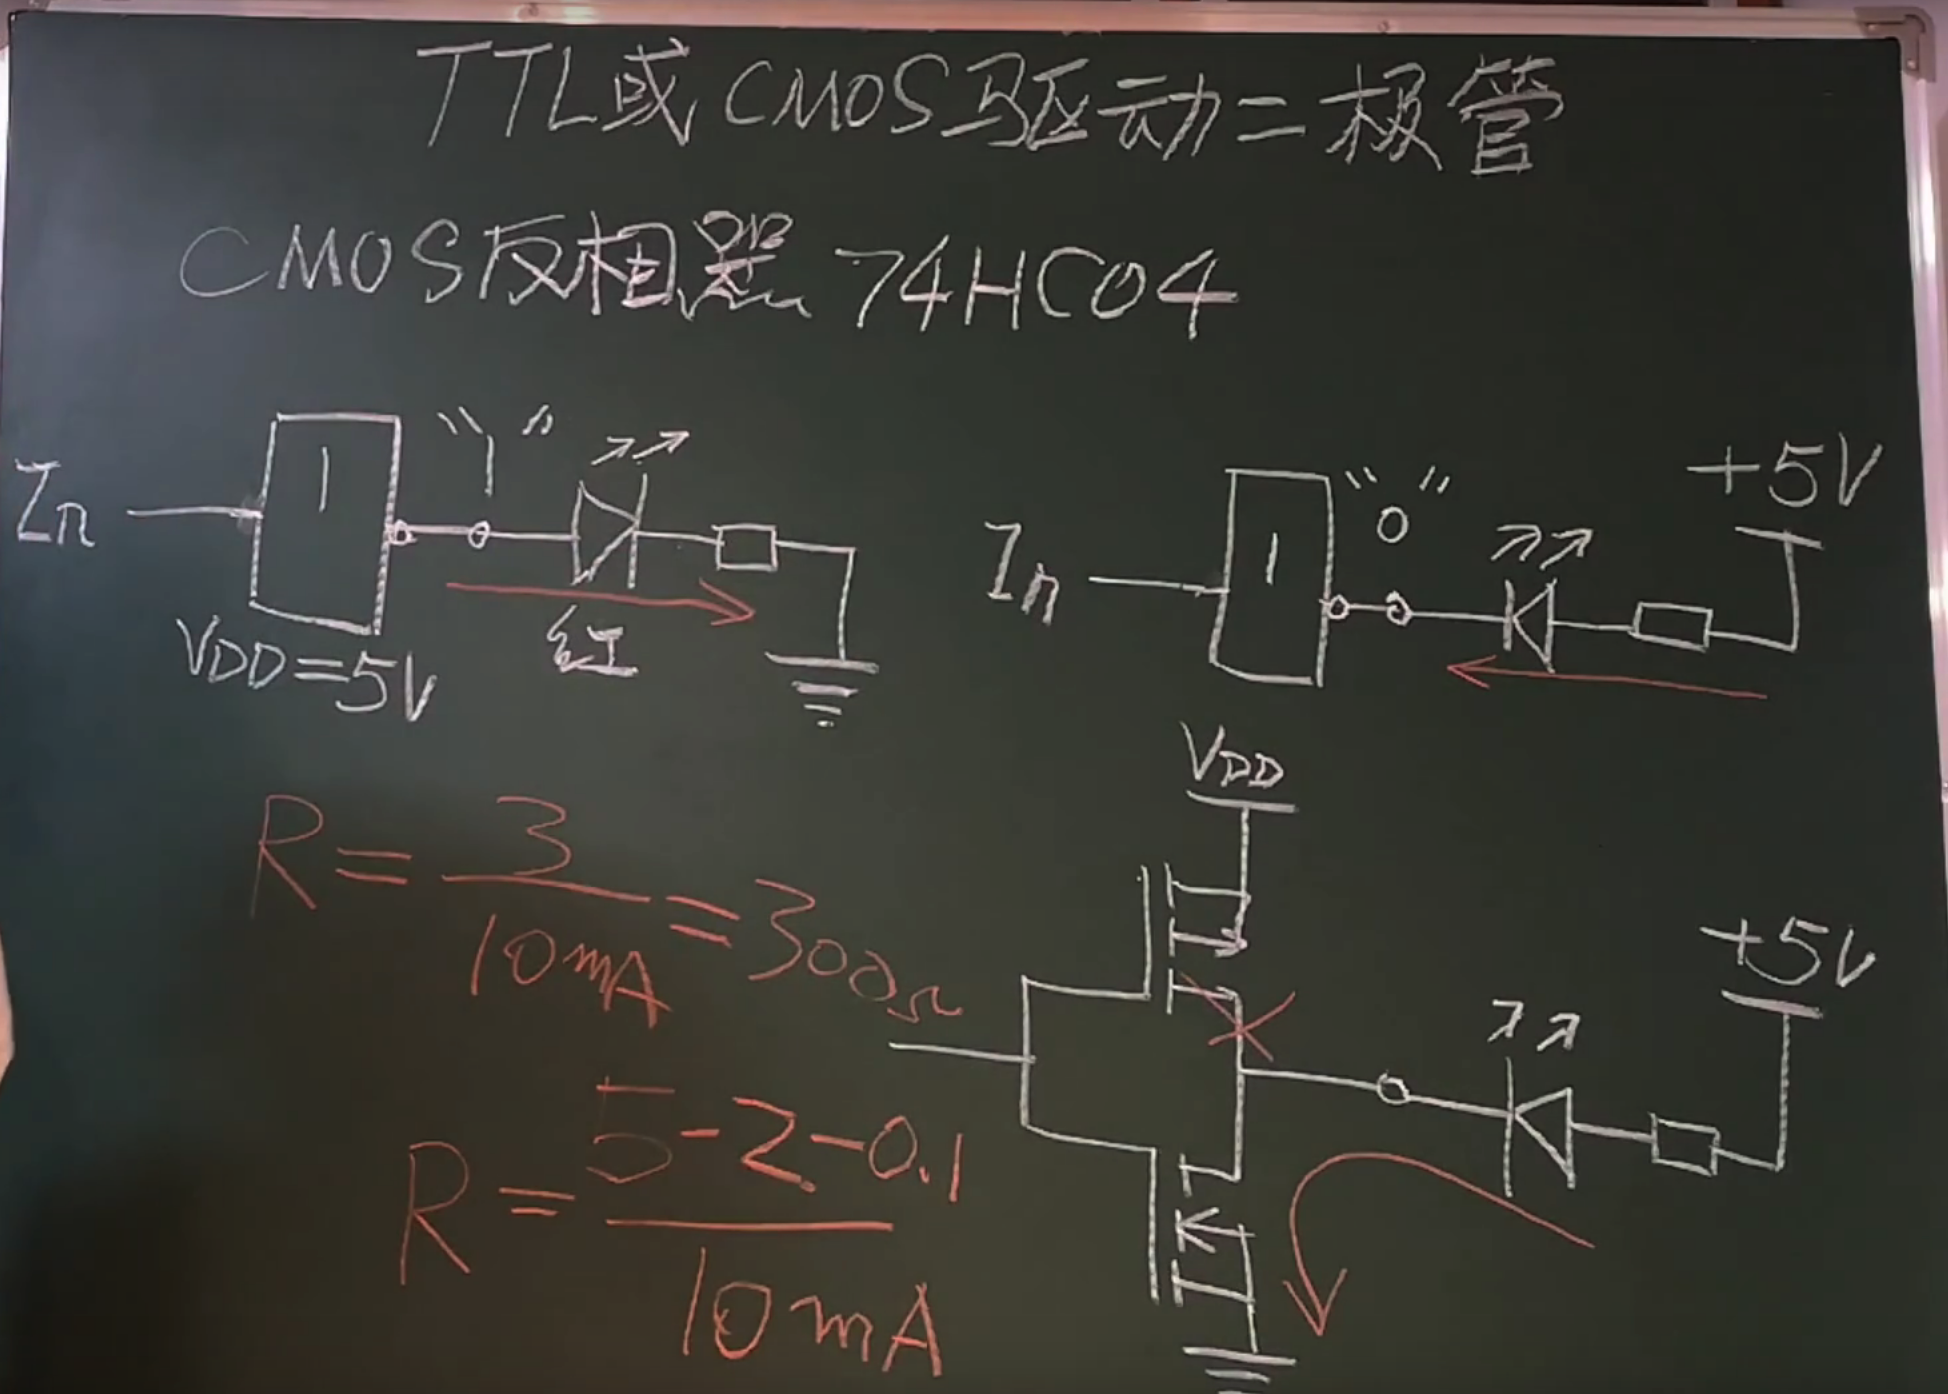 TTL或CMOS驱动二极管
CMOS反相器 74HC04
In
1
"1"
VDD=5V
红
In
1
"0"
+5V
R=3/10mA=300Ω
R=5-2-0.1/10mA
VDD
+5V